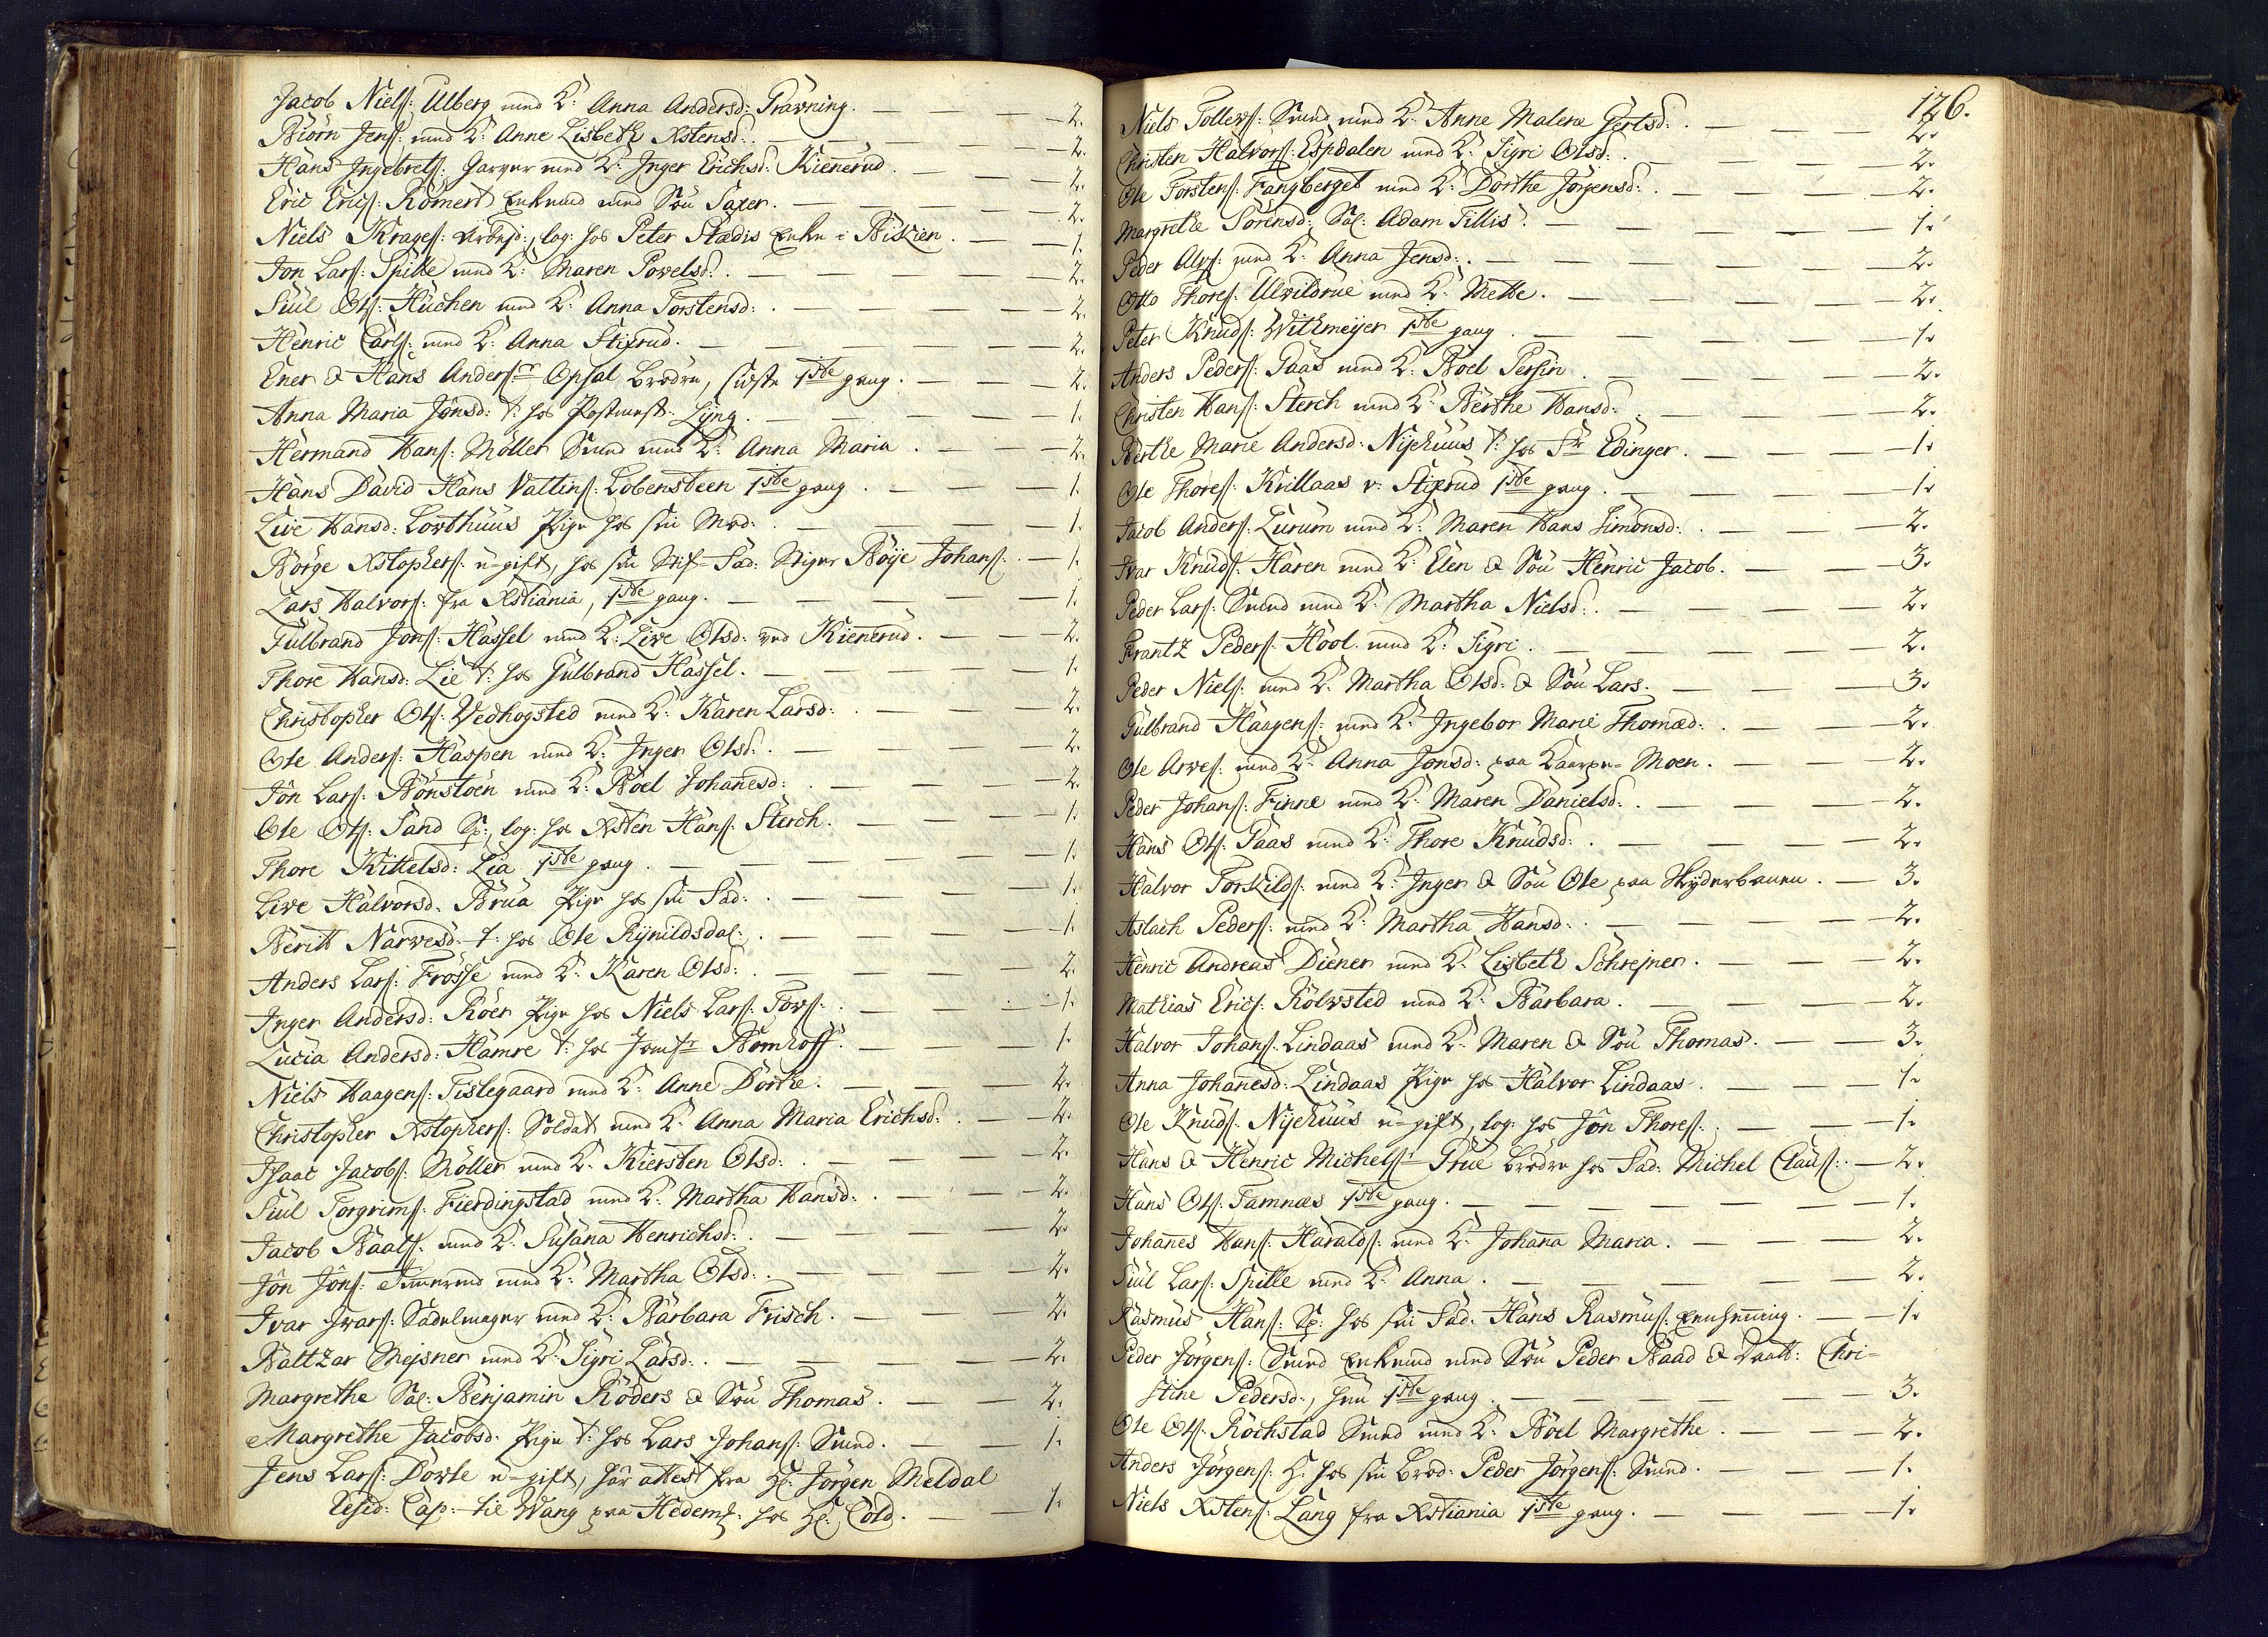 Jacob Niels: Ulberg med K: Anna Andersd: Pravning. — 2.
Biörn Jens: med K: Anne Lisbeth Xstensd: — 2.
Hans Ingebrets: Garver med K: Inger Erichsd: Kiennerud. — 2.
Eric Erics: Römert Enkemd med Sön Saxer. — 2.
Niels Krages: log: hos Peter Stædis Enke i — 1.
Jon Lars: Spille med K: Maren Povelsd: — 2.
Siül Ols: Hüchen med K: Anna Torstensd: — 2.
Henric Carls: med K: Anna Stixrud. — 2.
Ener & Hans Anders: Opsal, brödre, sidste 1ste gang. — 2.
Anna Maria Jönsd: t: hos Postmest: Lÿng. — 1.
Hermand Hans: Möller Smed med K: Anna Maria. — 2.
Hans David Hans Vattins: Lobensteen 1ste gang. — 1.
Live Hansd: Lovthüüs Pige hos sin Mod: — 1.
Börge Xstophers: u-gift, hos sin Stif-Fad: Stiger Böije Johans: — 1.
Lars Halvors: fra Xstiania, 1ste gang. — 1.
Gülbrand Jons: Hassel med K: Live Olsd: ved Kiennerud. — 2.
Thore Hansd: Lie t: hos Gülbrand Hassel. — 1.
Christopher Ols: Vedhogsted med K: Karen Larsd: — 2.
Ole Anders: Haspen med K: Inger Olsd: — 2.
Jön Lars: Bönstöen med K: Boel Johannesd: — 2.
Ole Ols: Sand Sp:, log: hos Xsten Hans: Sterch. — 1.
Thore Kittelsd: Lia 1ste gang. — 1.
Live Halvorsd: Brua Pige hos sin Fad: — 1.
Beritt Narvesd: t: hos Ole Rÿnildsdal: — 1.
Anders Lars: Frosse med K: Karen Olsd: — 2.
Inger Andersd: Röer Pige hos Niels Lars: Tovs: — 1.
Lucia Andersd: Hamre t: hos Bornhoff. — 1.
Niels Haagens: Tislegaard med K: Anne Dorthe. — 2.
Christopher Xstophers: Soldat med K: Anna Maria Erichsd: — 2.
Isaac Jacobs: Möller med K: Kiersten Olsd: — 2.
Siül Torgrims: Fierdingstad med K: Martha Hansd: — 2.
Jacob Baals: med K: Susanna Henrichsd: — 2.
Jön Jöns: Tömmermd med K: Martha Olsd: — 2.
Ivar Ivars: Sadelmager med K: Barbara Frisch. — 2.
Baltzar Mejsner med K: Sigri Larsd: — 2.
Margrethe Sal: Benjamin Röders & Sön Thomas. — 2.
Margrethe Jacobsd: Pige t: hos Lars Johans: Smed. — 1.
Jens Lars: Dovle u-gift, har attest fra Hr: Jörgen Meldal
Resid: Cap: til Wang paa Hedem: hos Hr: Cold. — 1.
126.
Niels Tollevs: Smed med K: Anne Malena Gertsd: — 2.
Christen Halvors: Espdalen med K: Sigri Olsd: — 2.
Ole Torstens: Fangberget med K: Dorthe Jörgensd: — 2.
Margrethe Sörensd: Sal: Adam Tillis: — 1.
Peder Alfs: med K: Anna Jensd: — 2.
Otto Thores: Ulvildrue med K: Mette. — 2.
Peter Knuds: Withmeijer 1ste gang. — 1.
Anders Peders: Paas med K: Boel Persin. — 2.
Christen Hans: Sterch med K: Berthe Hansd: — 2.
Berthe Marie Andersd: Nijehüüs t: hos Sr Edinger. — 1.
Ole Thores: Krillaas v: Stixrud 1ste gang. — 1.
Jacob Anders: Lurum med K: Maren Hans Simonsd: — 2.
Ivar Knuds: Haren med K: Elen & Sön Henric Jacob. — 3.
Peder Lars: Smed med K: Martha Nielsd: — 2.
Frantz Peders: Hool med K: Sigri. — 2.
Peder Niels: med K: Martha Olsd: & Sön Lars. — 3.
Gülbrand Haagens: med K: Ingebor Marie Thomæd: — 2.
Ole Arves: med K: Anna Jonsd: paa Kaarpe-Moen. — 2.
Peder Johans: Finne med K: Maren Danielsd: — 2.
Hans Ols: Paas med K: Thore Knudsd: — 2.
Halvor Torkilds: med K: Inger & Sön Ole paa Skÿderbanen. — 3.
Aslach Peders: med K: Martha Hansd: — 2.
Henric Andreas Diener med K: Lisbeth Schrejner. — 2.
Mathias Erics: Kolvsted med K: Barbara. — 2.
Halvor Johans: Lindaas med K: Maren & Sön Thomas. — 3.
Anna Johannesd: Lindaas Pige hos Halvor Lindaas. — 1.
Ole Knuds: Nijehüüs u-gift, log: hos Jön Thores: — 1.
Hans & Henric Michels: Prue brödre hos Fad: Michel Claus: — 2.
Hans Ols: Tamnæs 1ste gang. — 1.
Johannes Hans: Haralds: med K: Johanna Maria. — 2.
Siül Lars: Spille med K: Anna. — 2.
Rasmus Hans: Sp: hos sin Fad: Hans Rasmus: — 1.
Peder Jörgens: Smed Enkemd med Sön Peder Baad & Daatt: Chri-
stine Pedersd:, hun 1ste gang. — 3.
Ole Ols: Rochstad Smed med K: Boel Margrethe. — 2.
Anders Jörgens: H: hos sin Brod: Peder Jörgens: Smed. — 1.
Niels Xstens: Lang fra Xstiania 1ste gang. — 1.